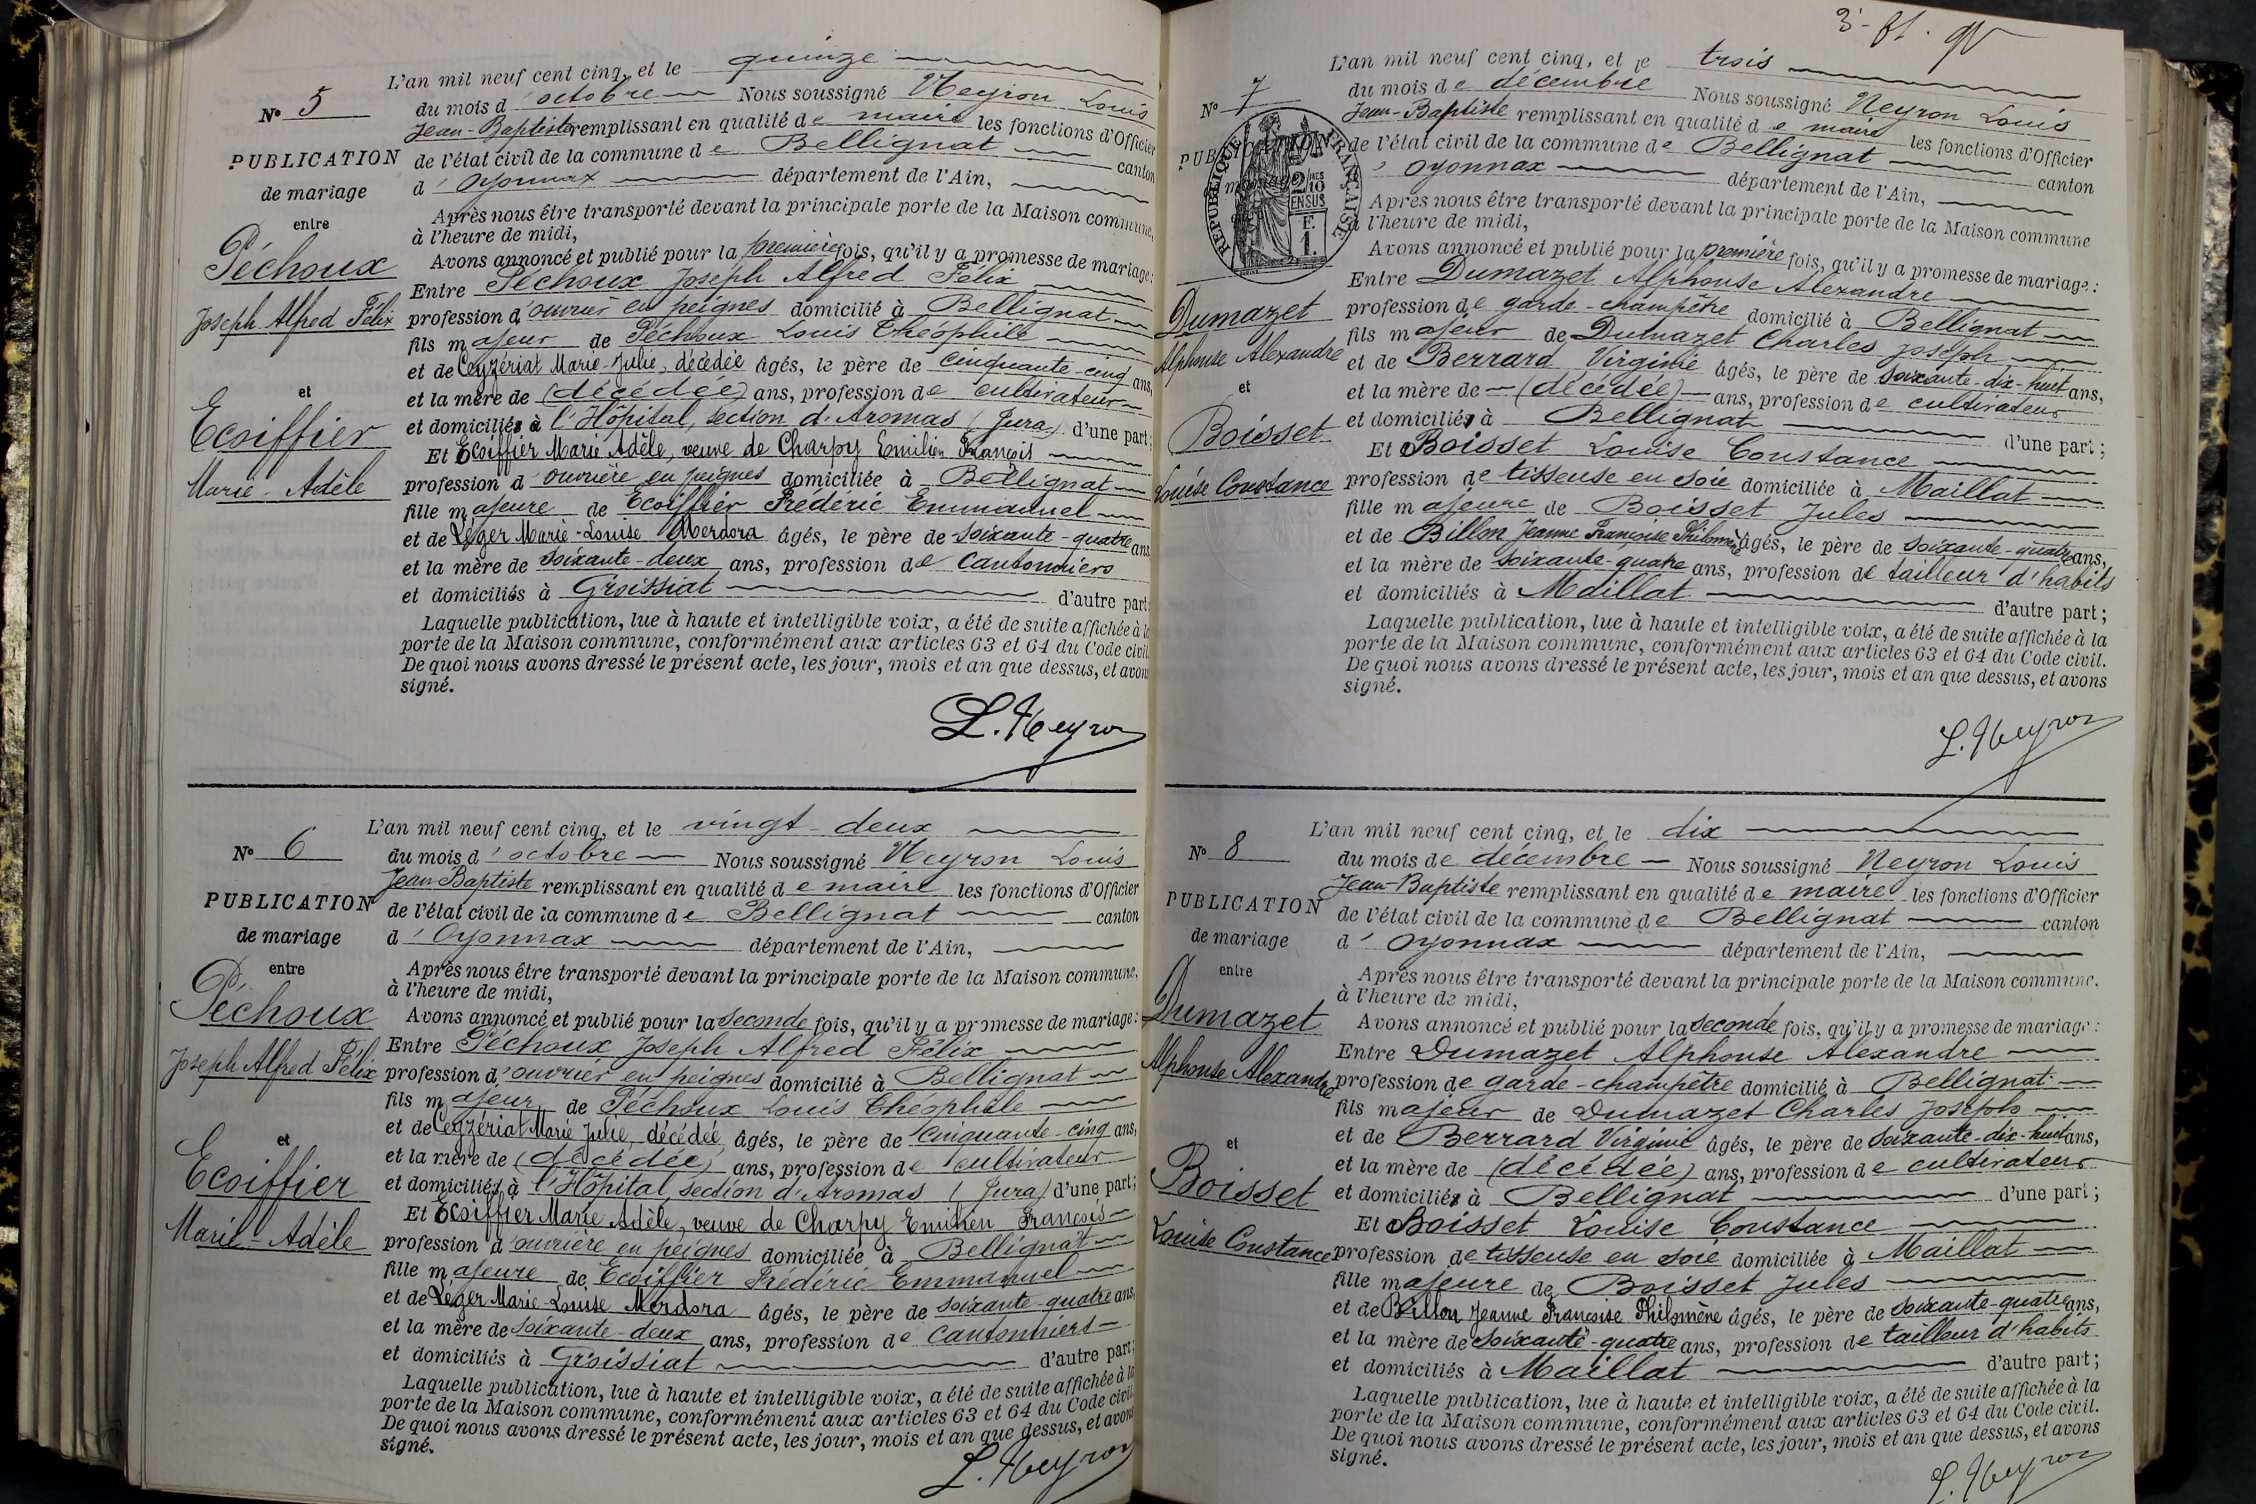 L'an mil neuf cent cinq, et le quinze
N° 5
du mois d'octobre Nous soussigné Neyron Louis
Jean-Baptiste remplissant en qualité de maire les fonctions d'Officier
PUBLICATION
de l'état civil de la commune de Bellignat canton
de mariage
d'Oyonnax département de l'Ain,
entre
Après nous être transporté devant la principale porte de la Maison commune,
à l'heure de midi,
Péchoux
Avons annoncé et publié pour la première fois, qu'il y a promesse de mariage:
Entre Péchoux Joseph Alfred Félix
Joseph Alfred Félix
profession d'ouvrier en peignes domicilié à Bellignat
fils majeur de Péchoux Louis Théophile
et de Ceyzériat Marie-Julie, décédée âgés, le père de cinquante-cinq ans,
et
et la mère de (décédée) ans, profession de cultivateur
Ecoiffier
et domiciliés à l'Hôpital, section d'Aromas (Jura) d'une part;
Et Ecoiffier Marie Adèle, veuve de Charpy Emilien François
Marie-Adèle
profession d'ouvrière en peignes domiciliée à Bellignat
fille majeure de Ecoiffier Frédéric Emmanuel
et de Léger Marie-Louise Merdora âgés, le père de soixante-quatre ans
et la mère de soixante-deux ans, profession de cantonniers
et domiciliés à Groissiat d'autre part;
Laquelle publication, lue à haute et intelligible voix, a été de suite affichée à la
porte de la Maison commune, conformément aux articles 63 et 64 du Code civil.
De quoi nous avons dressé le présent acte, les jour, mois et an que dessus, et avons
signé.
L. Neyron
L'an mil neuf cent cinq, et le vingt-deux
N° 6
du mois d'octobre Nous soussigné Neyron Louis
Jean-Baptiste remplissant en qualité de maire les fonctions d'Officier
PUBLICATION
de l'état civil de la commune de Bellignat canton
de mariage
d'Oyonnax département de l'Ain,
entre
Après nous être transporté devant la principale porte de la Maison commune,
à l'heure de midi,
Péchoux
Avons annoncé et publié pour la seconde fois, qu'il y a promesse de mariage:
Entre Péchoux Joseph Alfred Félix
Joseph Alfred Félix
profession d'ouvrier en peignes domicilié à Bellignat
fils majeur de Péchoux Louis Théophile
et de Ceyzériat Marie Julie, décédée âgés, le père de cinquante-cinq ans,
et
et la mère de (décédée) ans, profession de cultivateur
Ecoiffier
et domiciliés à l'Hôpital, section d'Aromas (Jura) d'une part;
Et Ecoiffier Marie Adèle, veuve de Charpy Emilien François
Marie-Adèle
profession d'ouvrière en peignes domiciliée à Bellignat
fille majeure de Ecoiffier Frédéric Emmanuel
et de Léger Marie-Louise Merdora âgés, le père de soixante-quatre ans,
et la mère de soixante-deux ans, profession de cantonniers
et domiciliés à Groissiat d'autre part;
Laquelle publication, lue à haute et intelligible voix, a été de suite affichée à la
porte de la Maison commune, conformément aux articles 63 et 64 du Code civil.
De quoi nous avons dressé le présent acte, les jour, mois et an que dessus, et avons
signé.
L. Neyron
L'an mil neuf cent cinq, et le trois
N° 7
du mois de décembre Nous soussigné Neyron Louis
Jean-Baptiste remplissant en qualité de maire les fonctions d'Officier
PUBLICATION
de l'état civil de la commune de Bellignat canton
mariage
d'Oyonnax département de l'Ain,
RÉPUBLIQUE FRANÇAISE
2/10 EN SUS
F. 1.
Après nous être transporté devant la principale porte de la Maison commune
à l'heure de midi,
Avons annoncé et publié pour la première fois, qu'il y a promesse de mariage:
Entre Dumazet Alphonse Alexandre
Dumazet
profession de garde-champêtre domicilié à Bellignat
fils majeur de Dumazet Charles Joseph
Alphonse Alexandre
et de Berrard Virginie âgés, le père de soixante-dix-huit ans,
et
et la mère de (décédée) ans, profession de cultivateur
Boisset
et domiciliés à Bellignat d'une part;
Et Boisset Louise Constance
Louise Constance
profession de tisseuse en soie domiciliée à Maillat
fille majeure de Boisset Jules
et de Billon Jeanne Françoise Philomène âgés, le père de soixante-quatre ans,
et la mère de soixante-quatre ans, profession de tailleur d'habits
et domiciliés à Maillat d'autre part;
Laquelle publication, lue à haute et intelligible voix, a été de suite affichée à la
porte de la Maison commune, conformément aux articles 63 et 64 du Code civil.
De quoi nous avons dressé le présent acte, les jour, mois et an que dessus, et avons
signé.
L. Neyron
L'an mil neuf cent cinq, et le dix
N° 8
du mois de décembre Nous soussigné Neyron Louis
Jean-Baptiste remplissant en qualité de maire les fonctions d'Officier
PUBLICATION
de l'état civil de la commune de Bellignat canton
de mariage
d'Oyonnax département de l'Ain,
entre
Après nous être transporté devant la principale porte de la Maison commune,
à l'heure de midi,
Dumazet
Avons annoncé et publié pour la seconde fois, qu'il y a promesse de mariage:
Entre Dumazet Alphonse Alexandre
Alphonse Alexandre
profession de garde-champêtre domicilié à Bellignat
fils majeur de Dumazet Charles Joseph
et
et de Berrard Virginie âgés, le père de soixante-dix-huit ans,
et la mère de (décédée) ans, profession de cultivateur
Boisset
et domiciliés à Bellignat d'une part;
Et Boisset Louise Constance
Louise Constance
profession de tisseuse en soie domiciliée à Maillat
fille majeure de Boisset Jules
et de Billon Jeanne Françoise Philomène âgés, le père de soixante-quatre ans,
et la mère de soixante-quatre ans, profession de tailleur d'habits
et domiciliés à Maillat d'autre part;
Laquelle publication, lue à haute et intelligible voix, a été de suite affichée à la
porte de la Maison commune, conformément aux articles 63 et 64 du Code civil.
De quoi nous avons dressé le présent acte, les jour, mois et an que dessus, et avons
signé.
L. Neyron